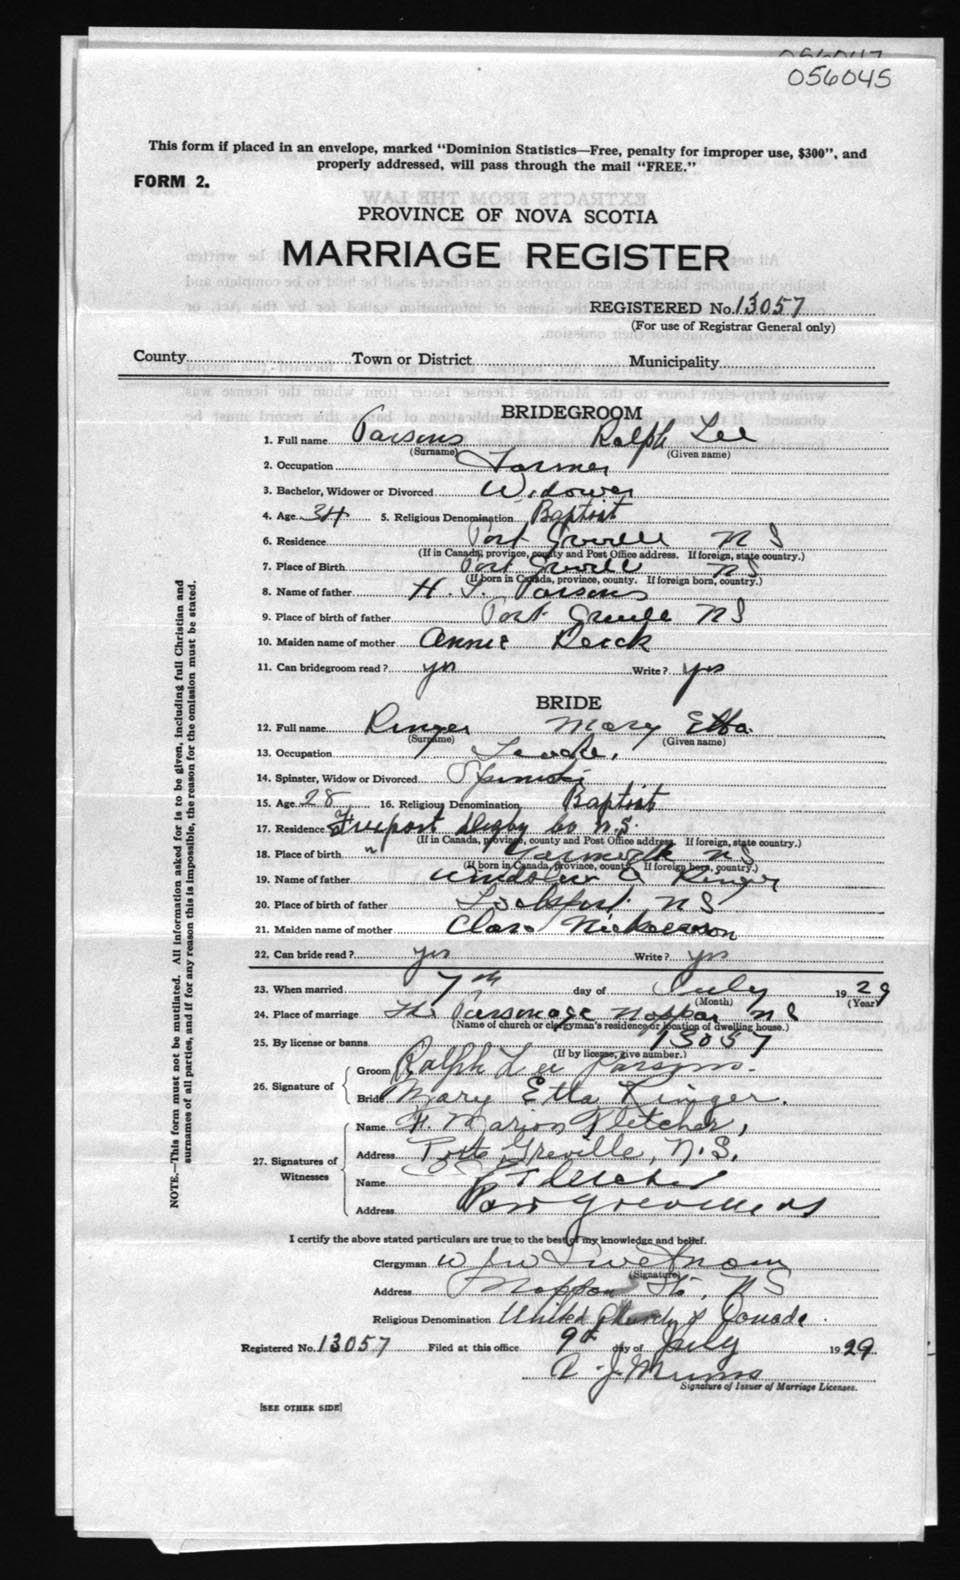 056045
This form if placed in an envelope, marked "Dominion Statistics—Free, penalty for improper use, $300", and
properly addressed, will pass through the mail "FREE."
FORM 2.
PROVINCE OF NOVA SCOTIA
MARRIAGE REGISTER
REGISTERED No. 13057
(For use of Registrar General only)
County Town or District Municipality
BRIDEGROOM
1. Full name Parsons Ralph Lee
(Surname) (Given name)
2. Occupation Farmer
3. Bachelor, Widower or Divorced Widower
4. Age 34 5. Religious Denomination Baptist
6. Residence Port Greville N S
(If in Canada, province, county and Post Office address. If foreign, state country.)
7. Place of Birth Port Greville N S
(If born in Canada, province, county. If foreign born, country.)
8. Name of father H. T. Parsons
9. Place of birth of father Port Greville N S
10. Maiden name of mother Annie
11. Can bridegroom read? yes Write? yes
BRIDE
12. Full name Ringer Mary Etta
(Surname) (Given name)
13. Occupation
14. Spinster, Widow or Divorced Spinster
15. Age 28 16. Religious Denomination Baptist
17. Residence Freeport Digby Co N.S.
(If in Canada, province, county and Post Office address. If foreign, state country.)
18. Place of birth Yarmouth N S
(If born in Canada, province, county. If foreign born, country.)
19. Name of father Ringer
20. Place of birth of father Lockeport N S
21. Maiden name of mother Clara Nickerson
22. Can bride read? yes Write? yes
23. When married 7th day of July 1929
(Month) (Year)
24. Place of marriage The Parsonage Nappan N S
(Name of church or clergyman's residence or location of dwelling house.)
25. By license or banns 13057
(If by license, give number.)
26. Signature of
Groom Ralph Lee Parsons.
Bride Mary Etta Ringer.
27. Signatures of Witnesses
Name Marion Fletcher,
Address Port Greville, N.S.
Name Fletcher
Address Port Greville N S
I certify the above stated particulars are true to the best of my knowledge and belief.
Clergyman
(Signature)
Address Nappan Sta, N S
Religious Denomination United Church of Canada.
Registered No. 13057 Filed at this office 9th day of July 1929
Signature of Issuer of Marriage Licenses.
[SEE OTHER SIDE]
NOTE.—This form must not be mutilated. All information asked for is to be given, including full Christian and
surnames of all parties, and if for any reason this is impossible, the reason for the omission must be stated.